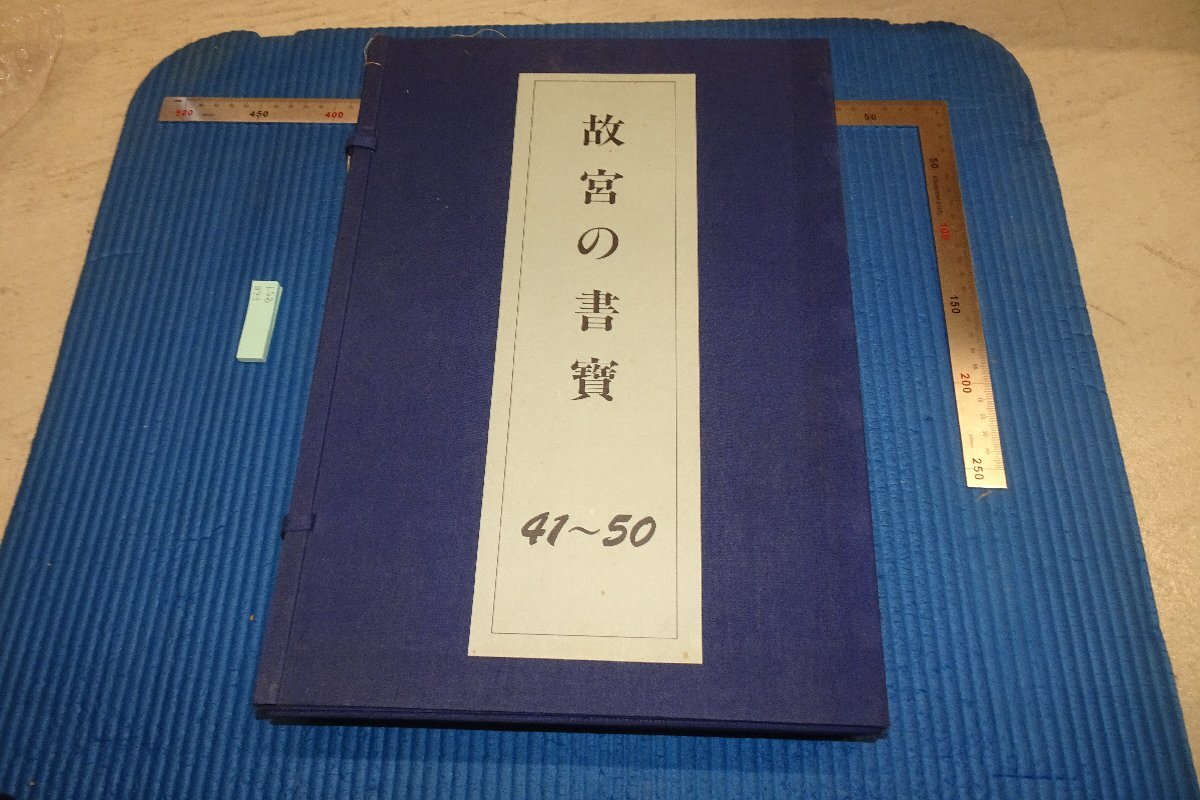 故宮の書寶
41~50
500
450
400
50
50
100
150
200
250